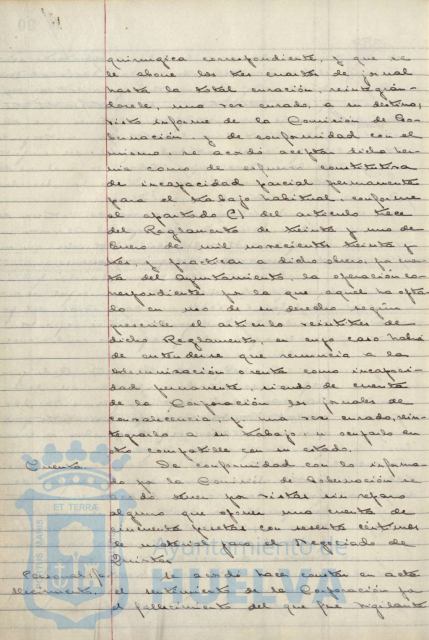 quirurgica correspondiente, y que se
le abone los tres cuartos de jornal
hasta la total curación, reintegrán-
dosele, una vez curado, a su destino,
visto informe de la Comisión de Go-
bernación, y de conformidad con el
mismo, se acordó aceptar dicha her-
nia como de esfuerzo constitutiva
de incapacidad parcial permanente
para el trabajo habitual, conforme
al apartado C) del artículo trece
del Reglamento de treinta y uno de
Enero de mil novecientos treinta y
tres, y practicar a dicho obrero, por cuen-
ta del Ayuntamiento, la operación co-
rrespondiente por la que aquel ha opta-
do en uso de su derecho según
prescribe el artículo veintitres de
dicho Reglamento, en cuyo caso habrá
de entenderse que renuncia a la
indemnización o renta como incapaci-
dad permanente, siendo de cuenta
de la Corporación los jornales de
convalecencia, y una vez curado, rein-
tegrarlo a su trabajo, u ocuparlo en
otro compatible con su estado.
Cuenta. De conformidad con lo informa-
do por la Comisión de Gobernación se
acordó tener por vistas sin reparo
alguno que oponer una cuenta de
cincuenta pesetas con sesenta céntimos
de material para el Negociado de
Quintas
se acordó hacer constar en acta
el sentimiento de la Corporación por
el fallecimiento del que fué vigilante
ET TERRAE
Ayuntamiento de
HUELVA